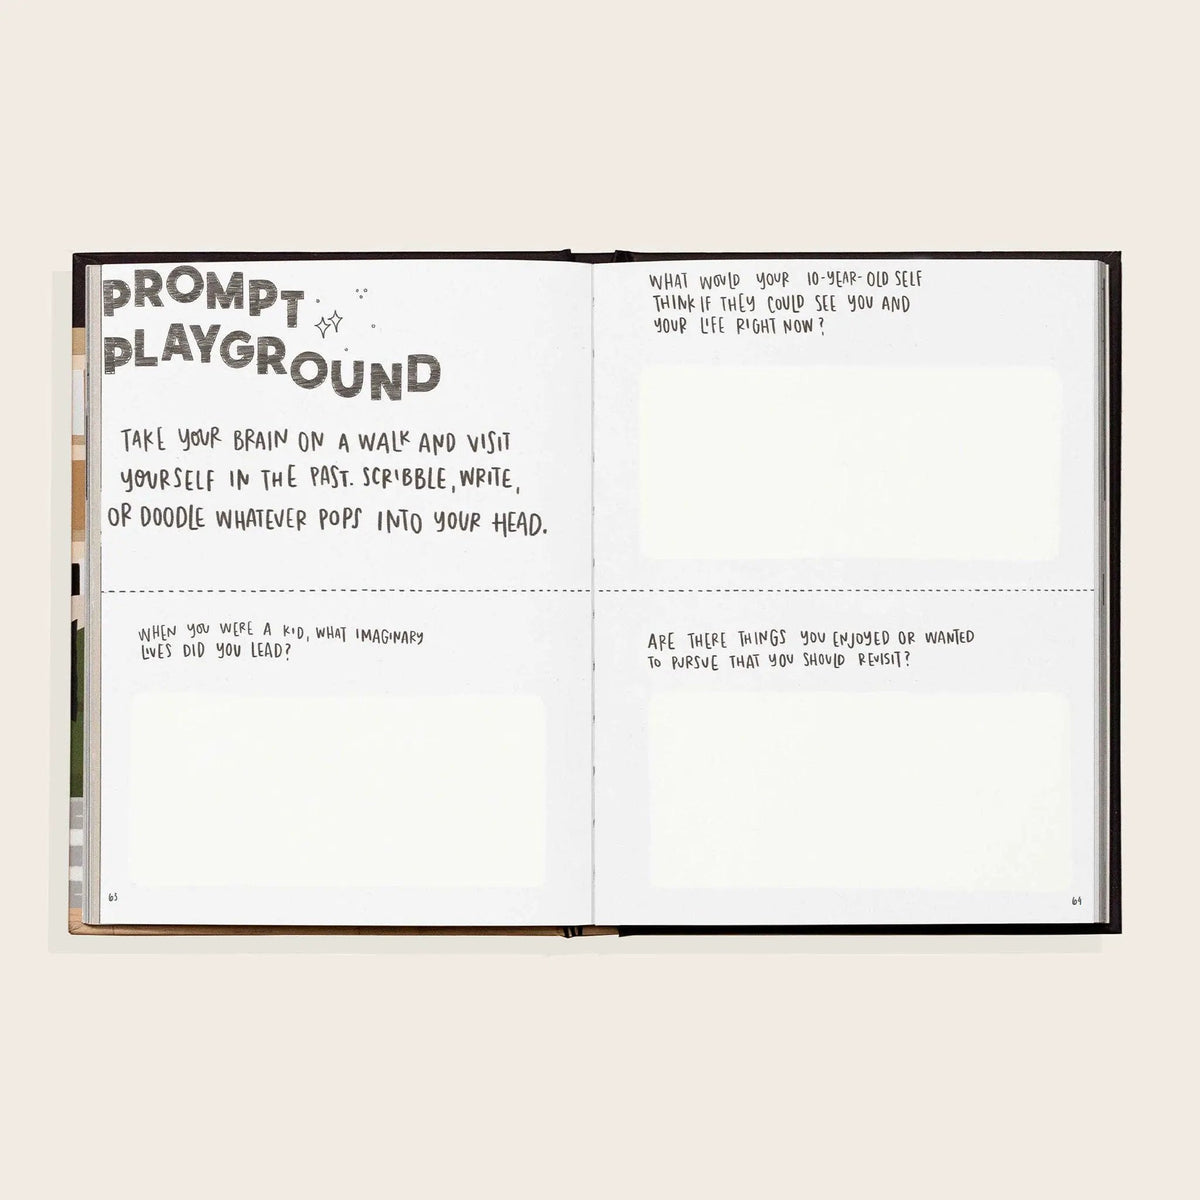 PROMPT
PLAYGROUND
TAKE YOUR BRAIN ON A WALK AND VISIT
YOURSELF IN THE PAST. SCRIBBLE, WRITE,
OR DOODLE WHATEVER POPS INTO YOUR HEAD.
WHEN YOU WERE A KID, WHAT IMAGINARY
LIVES DID YOU LEAD?
63
WHAT WOULD YOUR 10-YEAR-OLD SELF
THINK IF THEY COULD SEE YOU AND
YOUR LIFE RIGHT NOW?
ARE THERE THINGS YOU ENJOYED OR WANTED
TO PURSUE THAT YOU SHOULD REVISIT?
64